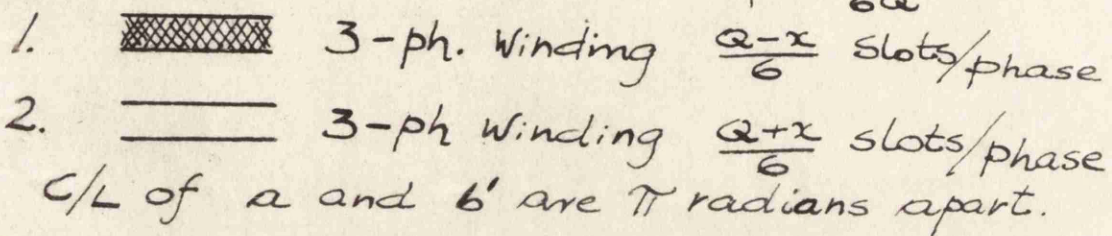 1. 3-ph. Winding Q-x/6 slots/phase
2. 3-ph Winding Q+x/6 slots/phase
C/L of a and b' are π radians apart.